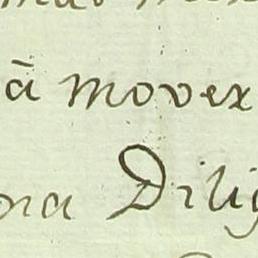 ā mover
na Dilig